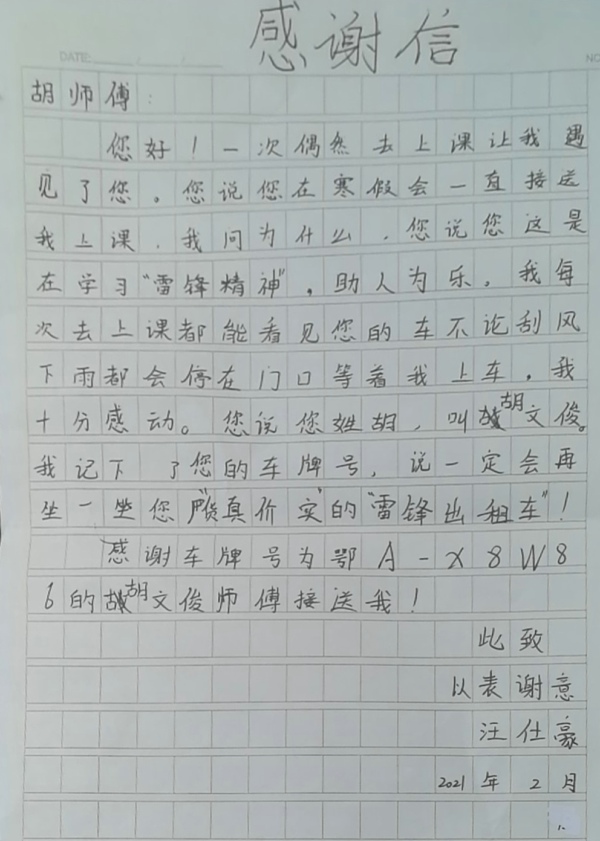 感谢信
DATE: / /
NO
胡师傅：
您好！一次偶然去上课让我遇
见了您。您说您在寒假会一直接送
我上课，我问为什么，您说您这是
在学习“雷锋精神”，助人为乐。我每
次去上课都能看见您的车不论刮风
下雨都会停在门口等着我上车，我
十分感动。您说您姓胡，叫胡文俊。
我记下了您的车牌号，说一定会再
坐一坐您“货真价实”的“雷锋出租车”！
感谢车牌号为鄂A-X8W8
6的胡文俊师傅接送我！
此致
以表谢意
汪仕豪
2021年2月